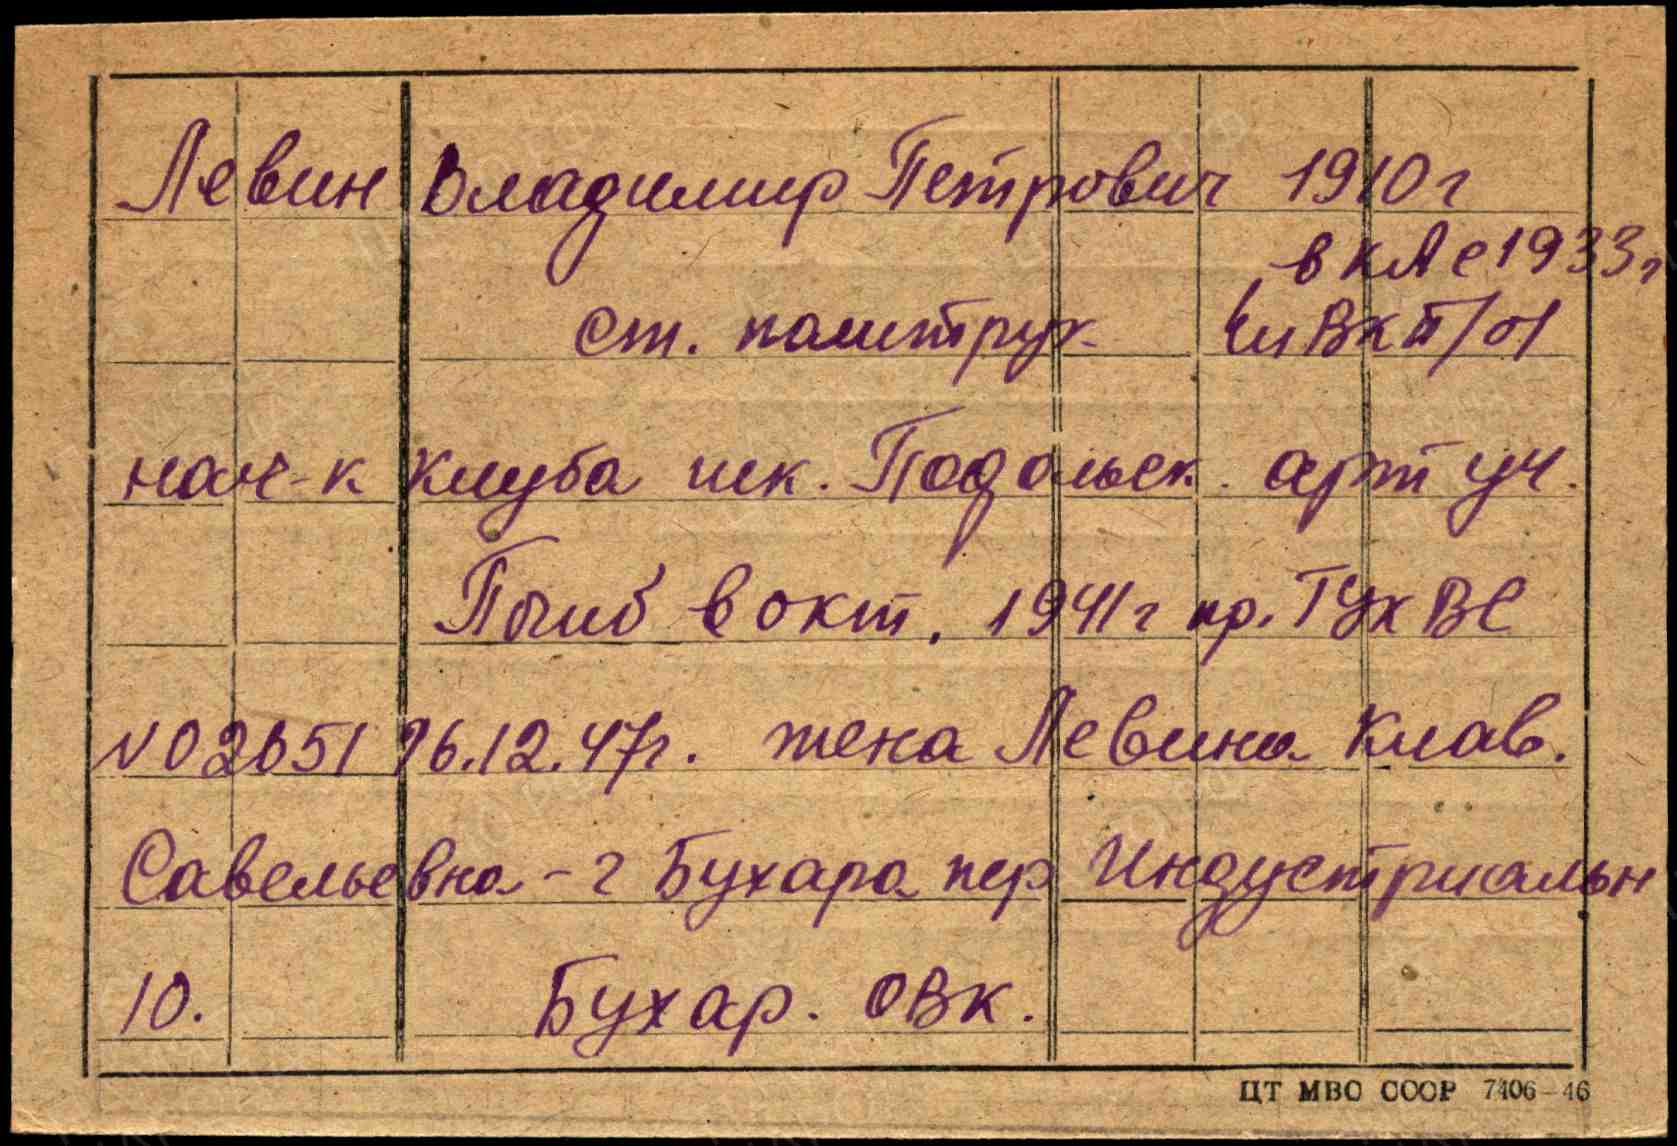 Левин Владимир Петрович 1910 г
в КА с 1933 г
ст. политрук чл ВКП/б/
нач-к клуба пех. Подольск. арт уч.
Погиб в окт. 1941 г пр. ГУК ВС
№ 02651 26.12.47 г. жена Левина Клав.
Савельевна - г Бухара пер Индустриальн
10. Бухар. ОВК.
ЦТ МВО СССР 7406-46